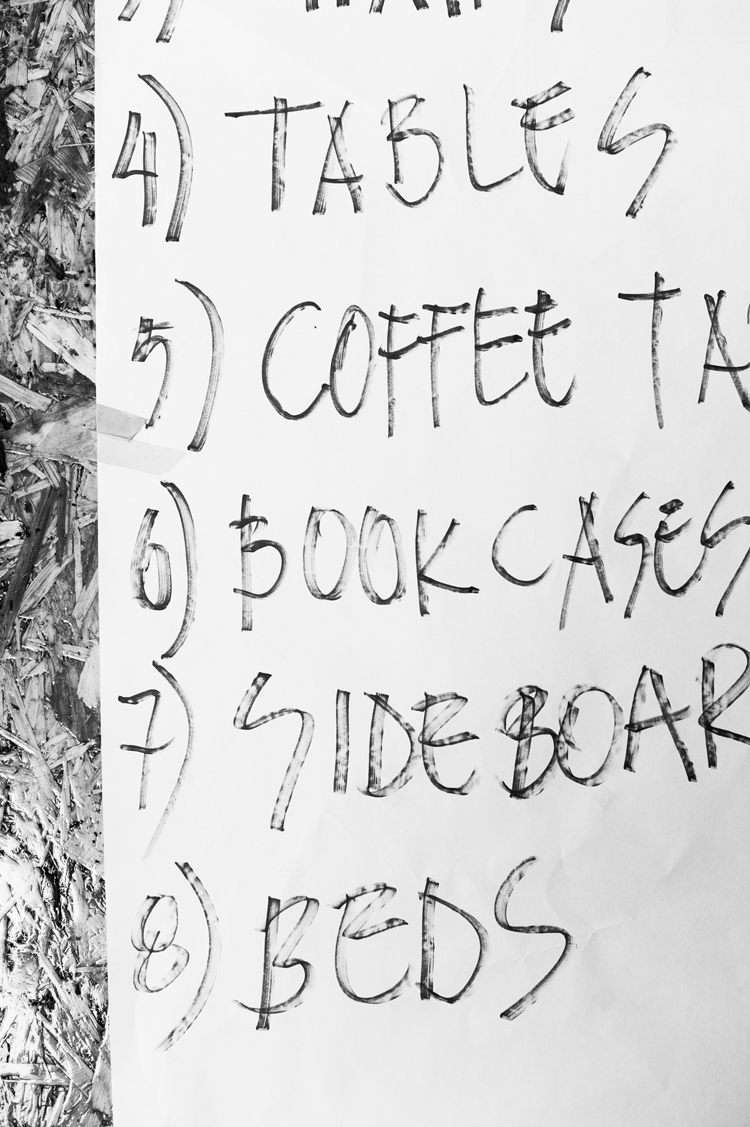 4) TABLES
5) COFFEE TA
6) BOOKCASES
7) SIDEBOAR
8) BEDS